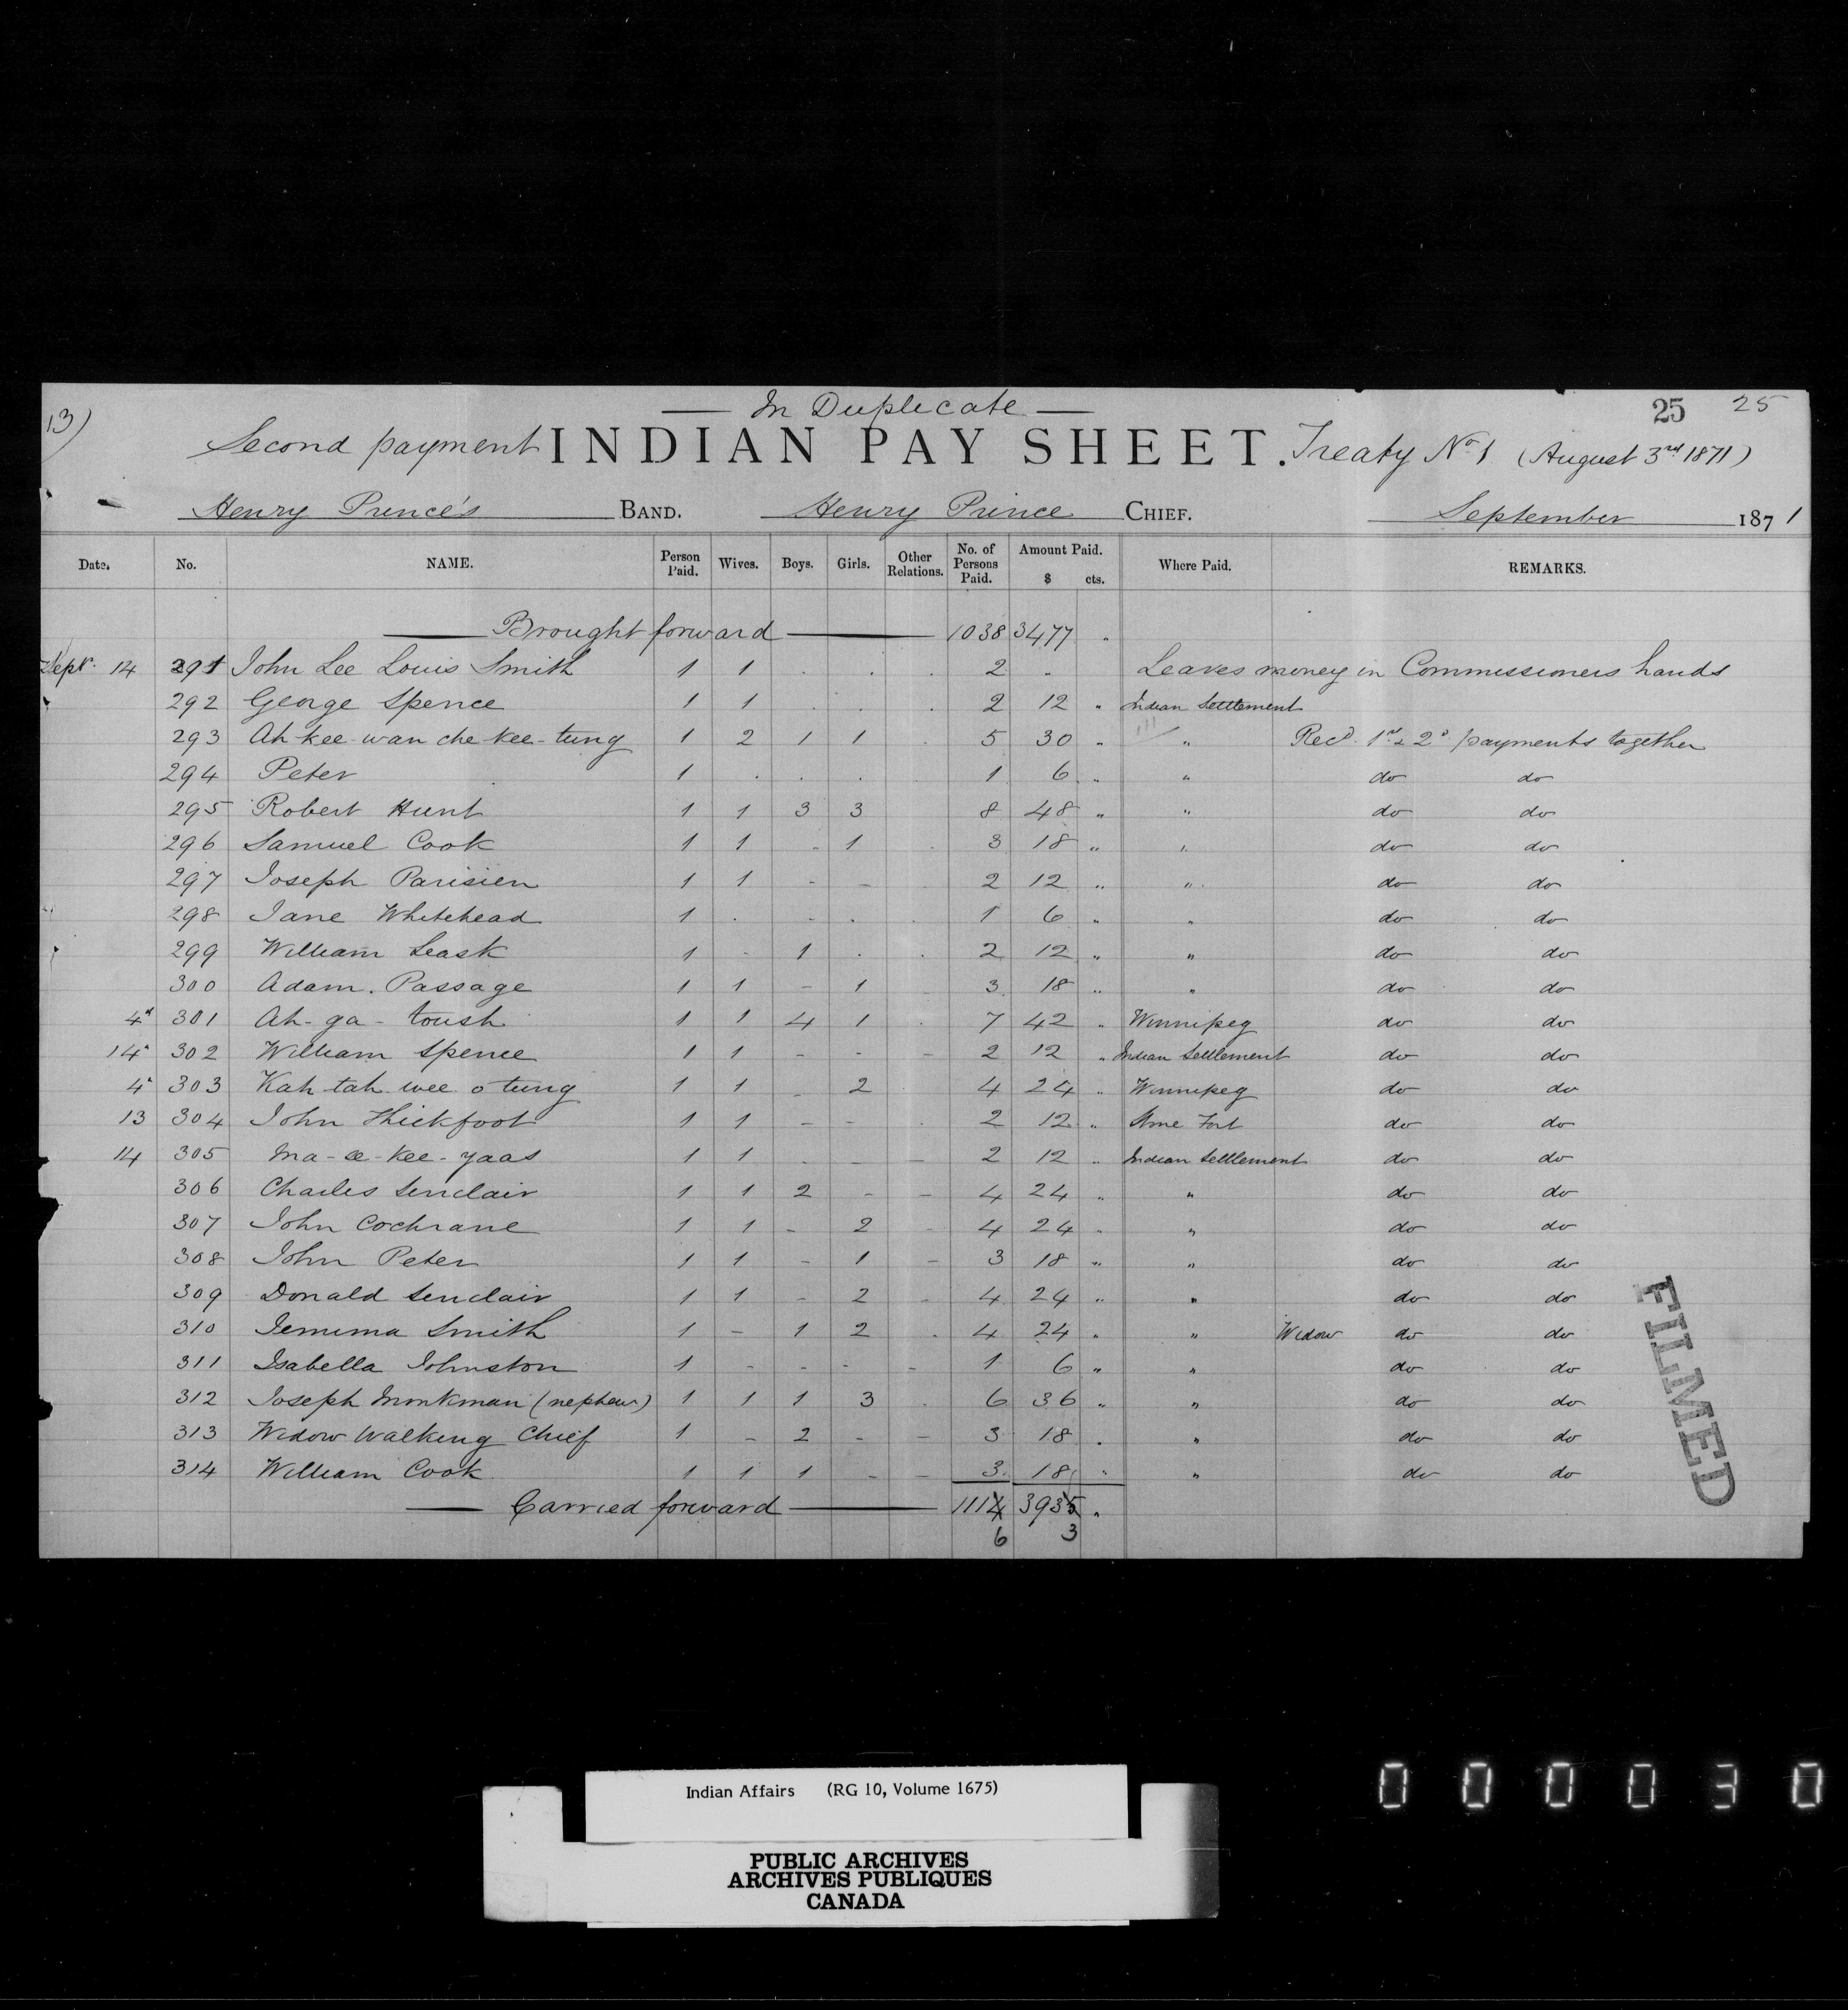 13)
— In Duplicate —
25 25
Second payment INDIAN PAY SHEET. Treaty No 1 (August 3rd 1871)
Henry Prince's BAND. Henry Prince CHIEF. September 1871
Date. No. NAME. Person Paid. Wives. Boys. Girls. Other Relations. No. of Persons Paid. Amount Paid. $ cts. Where Paid. REMARKS.
Brought forward 1038 3477 "
Septr. 14 291 John Lee Louis Smith 1 1 . . . 2 . Leaves money in Commissioners hands
292 George Spence 1 1 . . . 2 12 " Indian Settlement
293 Ah-kee-wan che-kee-tung 1 2 1 1 5 30 " " Recd. 1st & 2d payments together
294 Peter 1 . . . 1 6 " " do do
295 Robert Hunt 1 1 3 3 8 48 " " do do
296 Samuel Cook 1 1 - 1 . 3 18 " " do do
297 Joseph Parisien 1 1 - - 2 12 " " do do
298 Jane Whitehead 1 . - . . 1 6 " " do do
299 William Leask 1 - 1 . . 2 12 " " do do
300 Adam. Passage 1 1 - 1 3 18 " " do do
4th 301 Ah-ga-toush 1 1 4 1 . 7 42 " Winnipeg do do
14" 302 William Spence 1 1 - - - 2 12 " Indian Settlement do do
4" 303 Kah-tah-wee-o-tung 1 1 - 2 4 24 " Winnipeg do do
13 304 John Thickfoot 1 1 - - . 2 12 " Stone Fort do do
14 305 Ma-ce-kee-yaas 1 1 - - - 2 12 " Indian Settlement do do
306 Charles Sinclair 1 1 2 - - 4 24 " " do do
307 John Cochrane 1 1 - 2 - 4 24 " " do do
308 John Peter 1 1 - 1 - 3 18 " " do do
309 Donald Sinclair 1 1 - 2 - 4 24 " " do do
310 Jemima Smith 1 - 1 2 . 4 24 " " Widow do do
311 Isabella Johnston 1 - - - - 1 6 " " do do
312 Joseph Monkman (nephew) 1 1 1 3 . 6 36 " " do do
313 Widow Walking Chief 1 - 2 - - 3 18 . " do do
314 William Cook 1 1 1 - - 3 18 " " do do
Carried forward 1114 3935 "
6 3
FILMED
Indian Affairs (RG 10, Volume 1675)
PUBLIC ARCHIVES
ARCHIVES PUBLIQUES
CANADA
000030